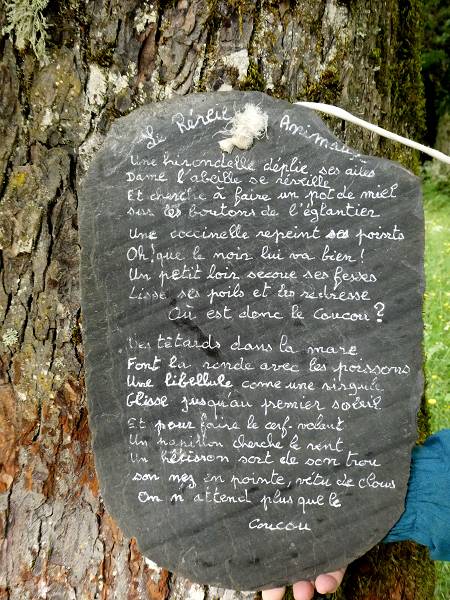 Le Réveil Animaux
Une hirondelle déplie ses ailes
Dame l'abeille se réveille
Et cherche à faire un pot de miel
sur les boutons de l'églantier
Une coccinelle repeint ses points
Oh! que le noir lui va bien!
Un petit loir secoue ses fesses
Lisse ses poils et les redresse
Où est donc le Coucou?
Des têtards dans la mare
Font la ronde avec les poissons
Une libellule come une virgule
Glisse jusqu'au premier soleil
Et pour faire le cerf-volant
Un papillon cherche le vent
Un hérisson sort de son trou
son nez en pointe, vêtu de clous
On n'attend plus que le
Coucou